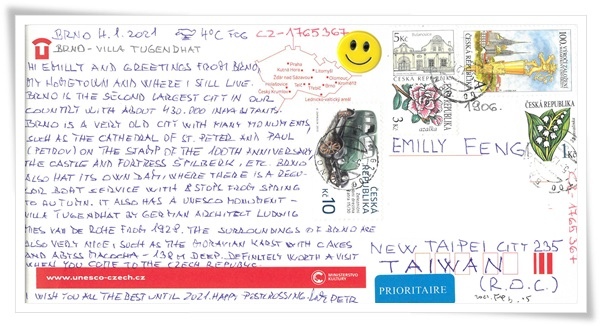 BRNO 4.1.2021 4°C FOG CZ-1765367
BRNO - VILLA TUGENDHAT
HI EMILLY AND GREETINGS FROM BRNO,
MY HOMETOWN AND WHERE I STILL LIVE.
BRNO IS THE SECOND LARGEST CITY IN OUR
COUNTRY WITH ABOUT 430.000 INHABITANTS.
BRNO IS A VERY OLD CITY WITH MANY MONUMENTS
SUCH AS THE CATHEDRAL OF ST. PETER AND PAUL
(PETROV) ON THE STAMP OF THE 100TH ANNIVERSARY
THE CASTLE AND FORTRESS SPILBERK, ETC. BRNO
ALSO HAT ITS OWN DAM, WHERE THERE IS A REGU-
LAR BOAT SERVICE WITH STOPS FROM SPRING
TO AUTUMN. IT ALSO HAS A UNESCO MONUMENT -
VILLA TUGENDHAT BY GERMAN ARCHITECT LUDWIG
MIES VAN DE ROHE FROM 1928. THE SUROUNDINGS OF BRNO ARE
ALSO VERY NICE, SUCH AS THE MORAVIAN KARST WITH CAVES
AND ABYSS MACOCHA - 138 M DEEP. DEFINITLY WORTH A VISIT
WHEN YOU COME TO THE CZECH REPUBLIC.
www.unesco-czech.cz
MINISTERSTVO
KULTURY
I WISH YOU ALL THE BEST UNTIL 2021. HAPPY POSTCROSSING. PETR
Praha
Kutná Hora
Litomyšl
Žďár nad Sázavou
Olomouc
Holašovice
Telč
Kroměříž
Český Krumlov
Třebíč
Brno
Lednicko-valtický areál
5Kč
ČESKÁ REPUBLIKA
100
ČESKÁ REPUBLIKA
3 Kč
azalka
ČESKÁ REPUBLIKA
1906.
ČESKÁ REPUBLIKA
1Kč
ČESKÁ
REPUBLIKA
Kč 10
EMILLY FENG
CZ-1765367
NEW TAIPEI CITY 235
TAIWAN
(R.O.C.)
PRIORITAIRE
2021. Feb. 05